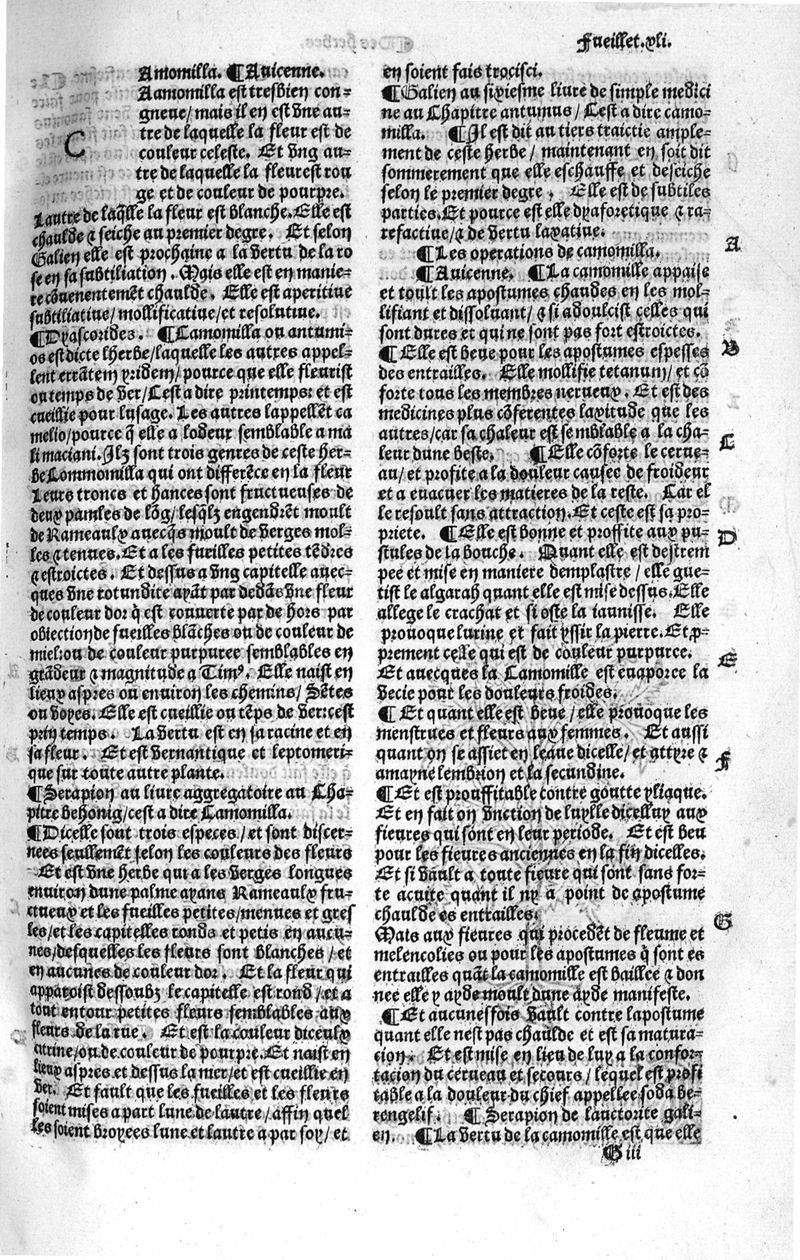 Fueillet.xli.
Amomilla. ¶Auicenne.
Aamomilla est tresbien con-
gneue/mais il en est vne au-
C
tre de laquelle la fleur est de
couleur celeste. Et vng au-
tre de laquelle la fleur est rou
ge et de couleur de pourpre.
Lautre de laq̃lle la fleur est blanche. Elle est
chaulde ⁊ seiche au premier degre. Et selon
Galien elle est prochaine a la vertu de la ro
se en sa subtiliation. Mais elle est en manie-
re cõuenentemẽt chaulde. Elle est aperitiue
subtiliatiue/mollificatiue/et resolutiue.
¶Dyascorides. ¶Camomilla ou antumi-
os est dicte lherbe/laquelle les autres appel-
lent errãtem yridem/pource que elle fleurist
ou temps de ver/Cest a dire printemps: et est
cueillie pour lusage. Les autres lappellẽt ca
melio/pource q̃ elle a lodeur semblable a ma
li maciani. Ilz sont trois genres de ceste her-
be Commomilla qui ont differẽce en la fleur
Leurs troncs et hances sont fructueuses de
deux pamles de lõg/lesq̃lz engendrẽt moult
de Rameaulx auecq̃s moult de verges mol-
les ⁊ tenues. Et a les fueilles petites tẽdres
⁊ estroictes. Et dessus a vng capitelle auec-
ques vne rotundite ayãt par dedãs vne fleur
de couleur dor q̃ est couuerte par de hors par
obiection de fueilles blãches ou de couleur de
miel:ou de couleur purpuree semblables en
grãdeur ⁊ magnitude a Timꝰ. Elle naist en
lieux aspres ou enuiron les chemins/ Sẽtes
ou voyes. Elle est cueillie ou tẽps de ver:cest
prin temps. La vertu est en sa racine et en
sa fleur. Et est vernantique et leptomeri-
que sur toute autre plante.
¶Serapion au liure aggregatoire au Cha-
pitre behonig/cest a dire Camomilla.
¶Dicelle sont trois especes/et sont discer-
nees seullemẽt selon les couleurs des fleurs
Et est vne herbe qui a les verges longues
enuiron dune palme ayans Rameaulx fru-
ctueux et les fueilles petites/menues et gres
les/et les capitelles ronds et petis en aucu-
nes/desquelles les fleurs sont blanches/et
en aucunes de couleur dor. Et la fleur qui
apparoist dessoubz le capitelle est rond/et a
tout entour petites fleurs semblables aux
fleurs de la rue. Et est la couleur diceulx
citrine/ou de couleur de pourpre. Et naist en
lieux aspres et dessus la mer/et est cueillie en
ver. Et fault que les fueilles et les fleurs
soient mises a part lune de lautre/affin quel
les soient broyees lune et lautre a par soy/et
en soient fais trocisci.
¶Galien au sixiesme liure de simple medici
ne au Chapitre antumus/Cest a dire camo-
milla. ¶Il est dit au tiers traictie ample-
ment de ceste herbe/ maintenant en soit dit
sommerement que elle eschauffe et deseiche
selon le premier degre. Elle est de subtiles
parties. Et pource est elle dyaforetique ⁊ ra-
refactiue/⁊ de vertu laxatiue.
¶Les operations de camomilla.
A
¶Auicenne. ¶La camomille appaise
et toult les apostumes chaudes en les mol-
lifiant et dissoluant/⁊ si adoulcist celles qui
sont dures et qui ne sont pas fort estroictes.
B
¶Elle est beue pour les apostumes espesses
des entrailles. Elle mollifie tetanum/ et cõ
forte tous les membres nerueux. Et est des
medicines plus cõferentes laxitude que les
autres/car sa chaleur est semblable a la cha-
C
leur dune beste. ¶Elle cõforte le cerue-
au/et profite a la douleur causee de froideur
et a euacuer les matieres de la teste. Car el
le resoult sans attraction. Et ceste est sa pro-
D
priete. ¶Elle est bonne et proffite aux pu-
stules de la bouche. Quant elle est destrem
pee et mise en maniere demplastre/elle gue-
rist le algarah quant elle est mise dessus. Elle
allege le crachat et si oste la iaunisse. Elle
prouoque lurine et fait yssir la pierre. Et ꝓ-
prement celle qui est de couleur purpuree.
E
Et auecques la Camomille est euaporee la
vecie pour les douleurs froides.
¶Et quant elle est beue/elle prouoque les
menstrues et fleurs aux femmes. Et aussi
quant on se assiet en leaue dicelle/et attyre ⁊
F
amayne lembrion et la secundine.
¶Et est prouffitable contre goutte yliaque.
Et en fait on vnction de luylle dicelluy aux
fieures qui sont en leur periode. Et est beu
pour les fieures anciennes en la fin dicelles.
Et si vault a toute fieure qui sont sans for-
te acuite quant il ny a point de apostume
chauld es entrailles.
G
Mais aux fieures qui procedẽt de fleume et
melencolies ou pour les apostumes q̃ sont es
entrailles quãt la camomille est baillee ⁊ don
nee elle y ayde moult dune ayde manifeste.
¶Et aucunesfois vault contre lapostume
quant elle nest pas chaulde et est sa matura-
cion. Et est mise en lieu de luy a la confor-
tacion du cerueau et secours/lequel est profi
table a la douleur du chief appellee soda be-
rengelif. ¶Serapion de lauctorite gali-
en. ¶La vertu de la camomille est que elle
G iii